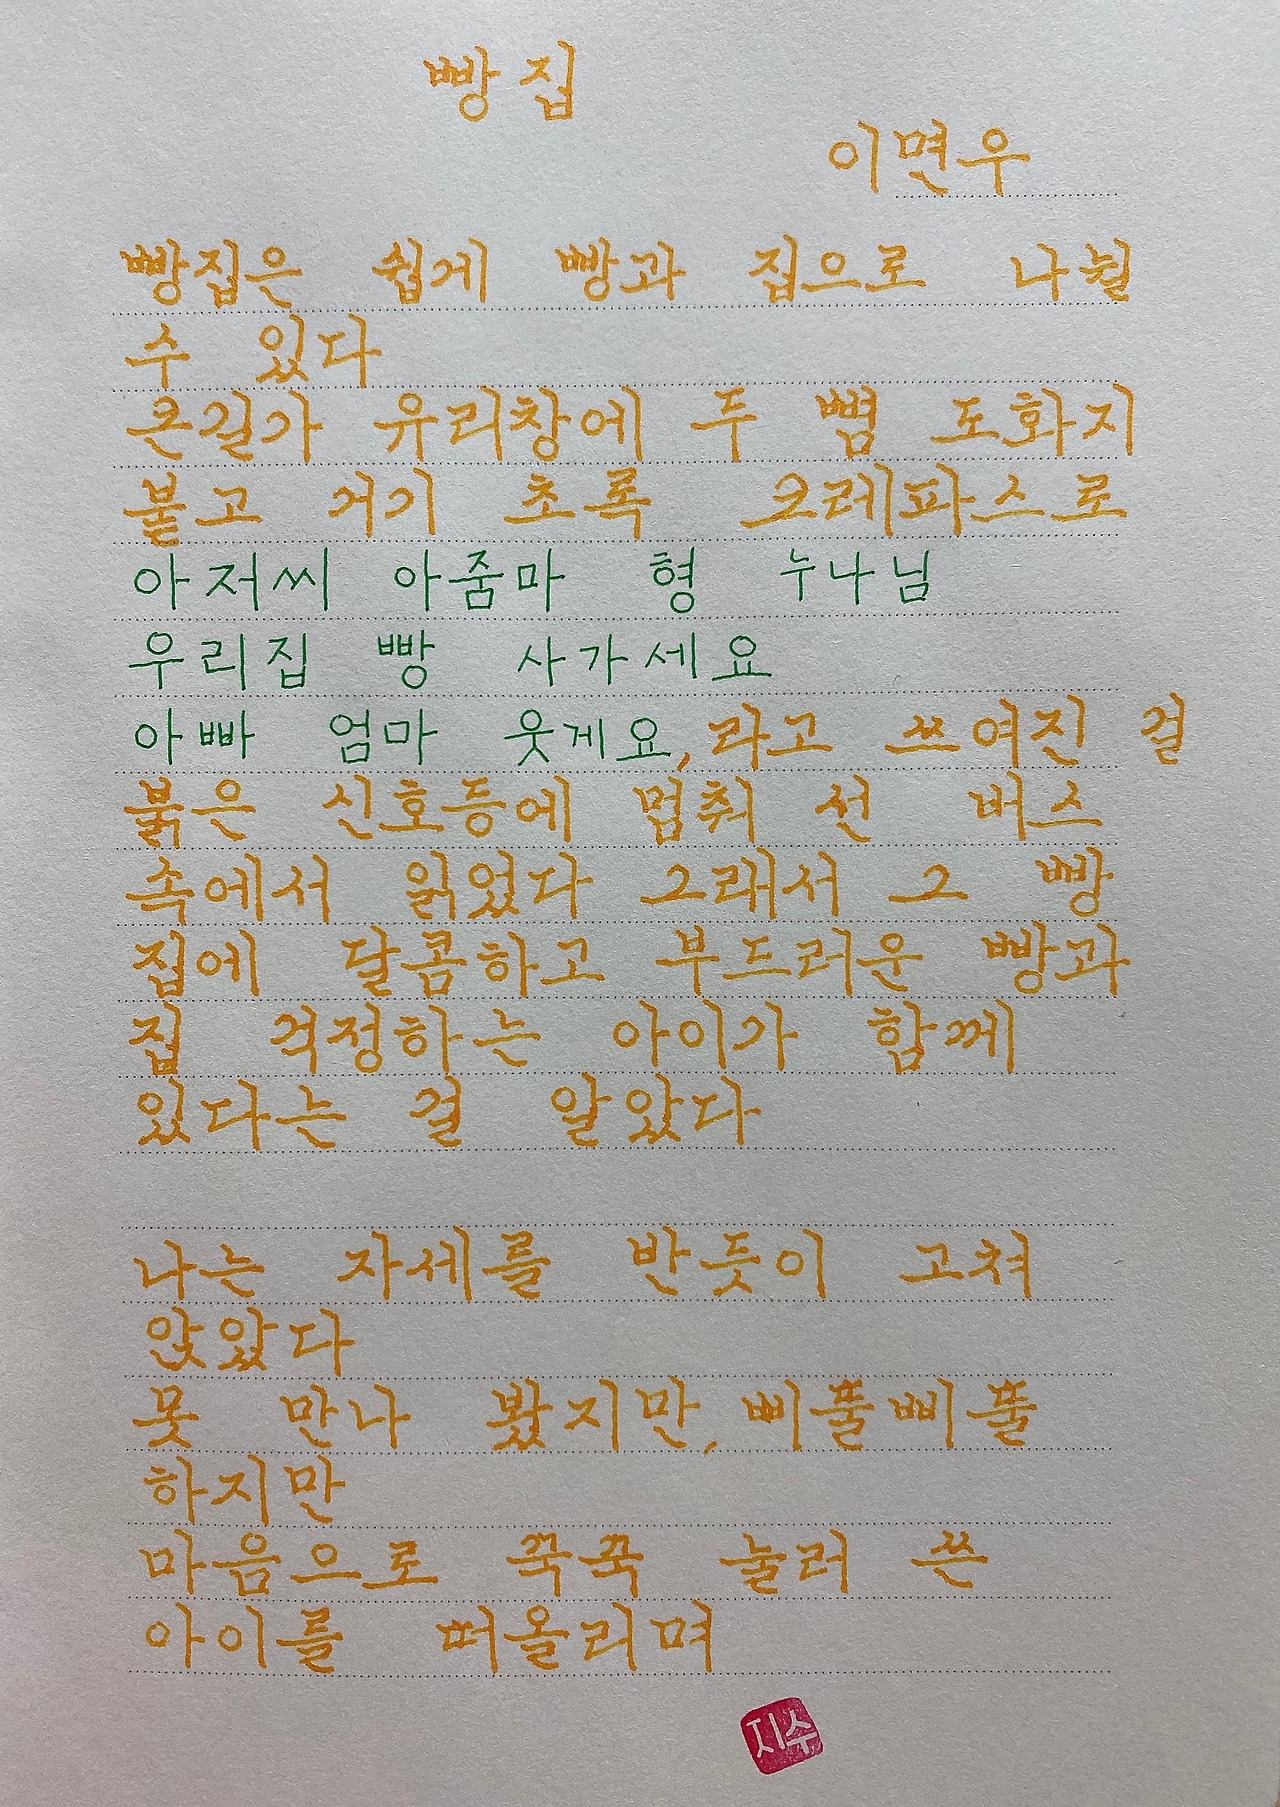 빵집
이면우
빵집은 쉽게 빵과 집으로 나뉠
수 있다
큰길가 유리창에 두 뼘 도화지
붙고 거기 초록 크레파스로
아저씨 아줌마 형 누나님
우리집 빵 사가세요
아빠 엄마 웃게요, 라고 쓰여진 걸
붉은 신호등에 멈춰 선 버스
속에서 읽었다 그래서 그 빵
집에 달콤하고 부드러운 빵과
집 걱정하는 아이가 함께
있다는 걸 알았다
나는 자세를 반듯이 고쳐
앉았다
못 만나 봤지만, 삐뚤삐뚤
하지만
마음으로 꾹꾹 눌러 쓴
아이를 떠올리며
지수